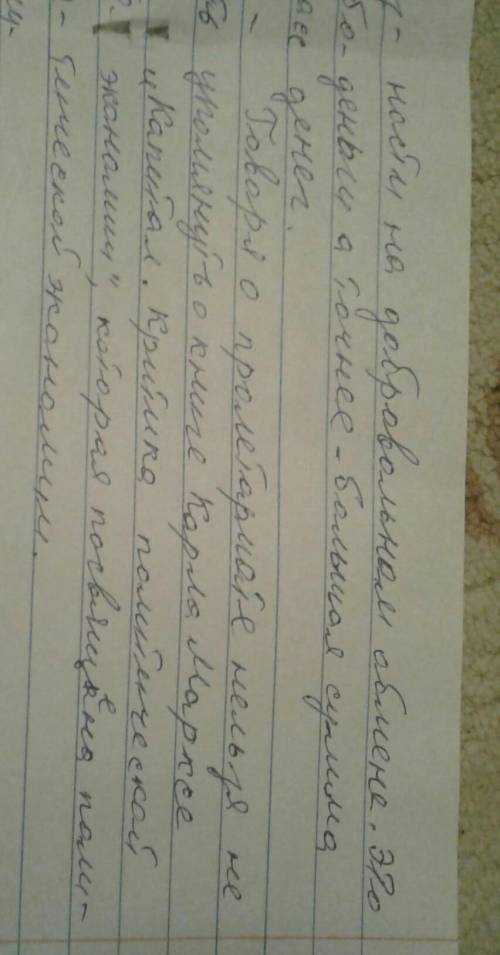 ности на добровольном обмене. Это
бо-деньги а точнее-большая сумма
денег.
Говоря о пролетариате нельзя не
упомянуть о книге Карла Марксе
"Капитал. Критика политической
экономии", которая посвящена поли-
тической экономии.